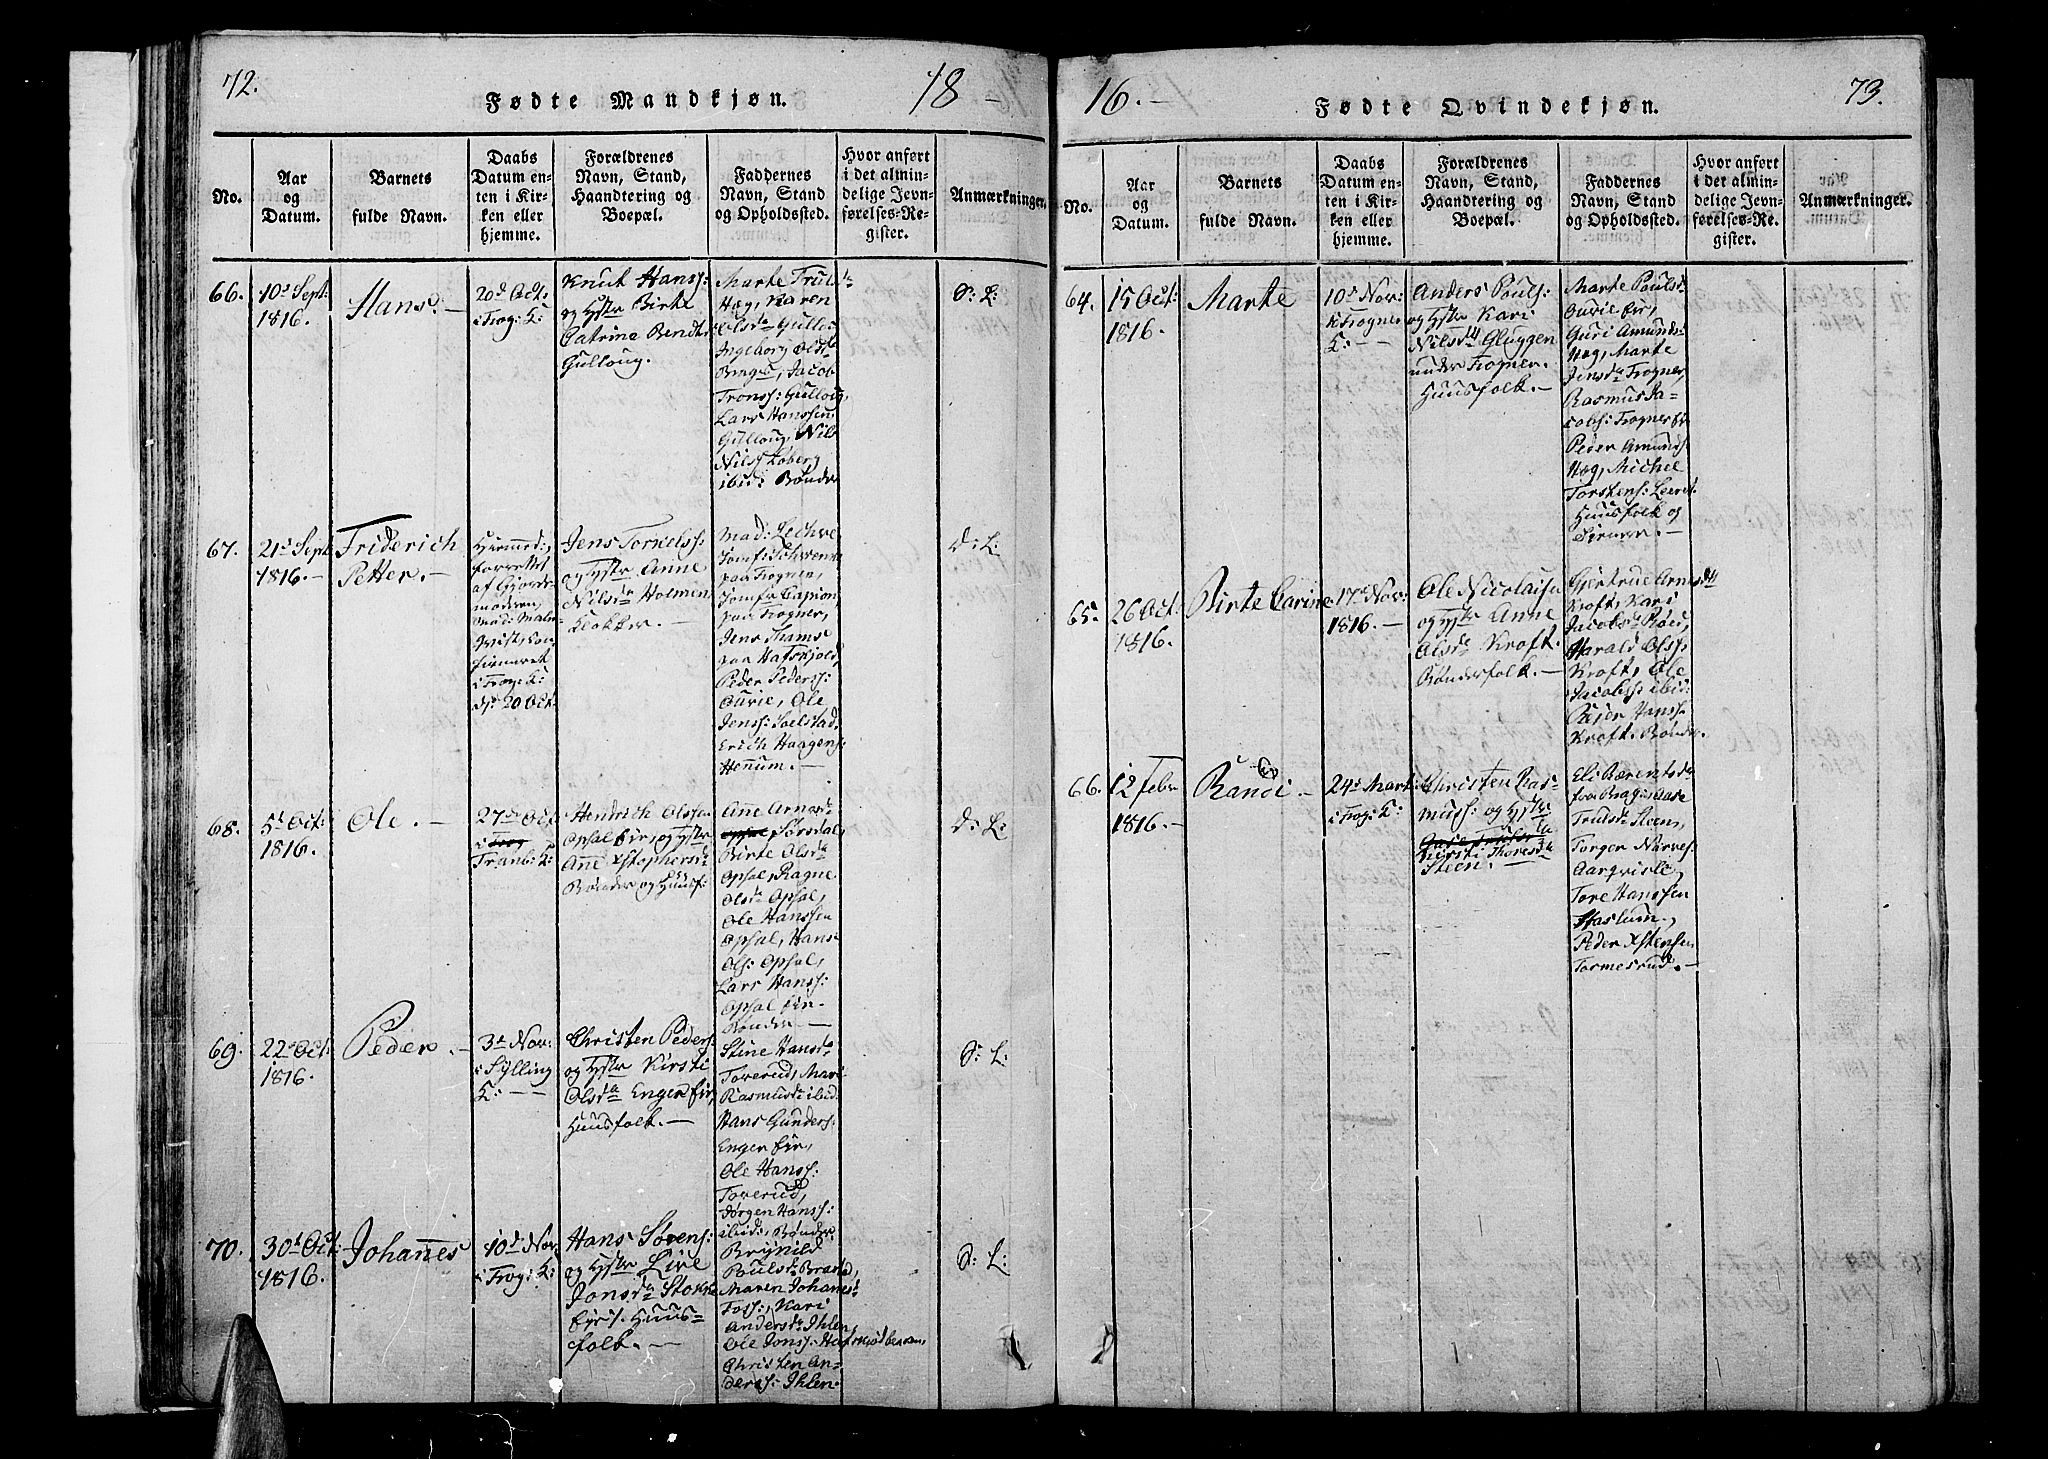 72.
Fødte Mandkjøn.
18 –
No.
Aar
og
Datum.
Barnets
fulde Navn.
Daabs
Datum en-
ten i Kir-
ken eller
hjemme.
Forældrenes
Navn, Stand,
Haandtering og
Boepæl.
Faddernes
Navn, Stand
og Opholdssted.
Hvor anført
i det almin-
delige Jevn-
førelses-Re-
gister.
Anmærkninger.
66.
10d Sept:
1816.
Hans. –
20d Oct:
i Trog: K:
Knut Hanss:
og Hstr Birte
Catrine Bendts
Gulloug.
Marte Truls
Høg, Karen
Olsda Gullo:
Ingeborg Olds
Brages, Jacob
Tronss: Gulloug,
Lars Hanssen
Gulloug, Nils
Nilss Loberg
ibid: Bønder
D: L:
67.
21d Sept
1816. –
Friderich
Petter. –
Hiemmed:
forrettet
af Gjorde-
moderen,
Mad: Malm-
qvist, con-
firmeret
i Trog: K:
d: 20 Oct:
Jens Torkelss:
og Hstr Anne
Nilsda Holmen
Klokker. –
Mad: Lechve
Jomf: Schwenn
paa Trogner,
Jomfr Capion
paa Trogner,
Jens Thams
paa Hafskjold,
Peder Pederss:
Ourie, Ole
Jenss: Soelstad,
Erich Haagens:
Hennum. –
D: L:
68.
5d Oct:
1816.
Ole. –
27de Oct
i Trog
Tranb: K:
Hendrich Olssen
Opsal Eie, og Hstr
Anne Xstophersd
Bønder og Huusf:
Anne Arnesda
Opsal Sørsdal,
Birte Olsda
Opsal, Ragne
Olsda Opsal,
Ole Hanssen
Opsal, Hans
Ols: Opsal,
Lars Hanss:
Opsal Eie.
Bønder –
D: L:
69.
22d Oct:
1816.
Peder. –
3d Nov:
i Sylling
K: – –
Christen Peders:
og Hstr Kirsti
Olsda Enger Eie,
Huusfolk. –
Stine Hansda
Toverud, Mari
Rasmusd: ibid:
Hans Gunders:
Enger Eie,
Ole Hanss:
Toverud,
Jørgen Hanss:
ibid:, Bønder
D: L:
70.
30d Oct:
1816.
Johannes
10d Nov:
i Trog: K:
Hans Sørens:
og Hstr Live
Jonsda Stokke
Eie. Huus-
folk. –
Brynild
Poulsda Brand,
Maren Johannes:
Foss:, Kari
Andersda Ihlen,
Ole Jonss: Hafskiold
Christen An-
derss: Ihlen.
D: L:
16. –
Fødte Qvindekjøn.
73.
No.
Aar
og
Datum.
Barnets
fulde Navn.
Daabs
Datum en-
ten i Kir-
ken eller
hjemme.
Forældrenes
Navn, Stand,
Haandtering og
Boepæl.
Faddernes
Navn, Stand
og Opholdssted.
Hvor anført
i det almin-
delige Jevn-
førelses-Re-
gister.
Anmærkninger.
64.
15 Oct:
1816.
Marte
10d Nov:
i Trogner
K: – –
Anders Pouls:
og Hstr Kari
Nilsda Gluggen
under Trogner.
Huusfolk. –
Marte Poulsd:
Ourie Eie,
Guri Amunds:
Høg, Marte
Jensda Trogner,
Rasmus Ja-
cobs: Trogner Eie
Peder Amunds:
Høg, Michel
Torstens: Leers:
Huusfolk og
65.
26 Oct:
1816.
Birte Carine.
17d Nov:
1816. –
Ole Nicolaisen
og Hstr Anne
Olsda Kroft.
Bønderfolk. –
Gjertrue Arnesd:
Kroft, Kari
Jacobsd: Røed,
Harald Olss:
Kroft, Ole
Jacobss: ibid:
Peder Hanss:
Kroft. Bønder.
66.
12 Febr
1816. –
Randi –
24d Mart:
i Trog: K:
Christen Ras-
muss: og Hstr
Aase Trulsda
Kersti Thoresda
Steen.
Eli Barentsda
fra Brag: Aase
Trulsd: Steen,
Torger Narves:
Aarqvisle,
Tore Hanssen
Haslum,
Peder Xstensen
Tormesrud. –